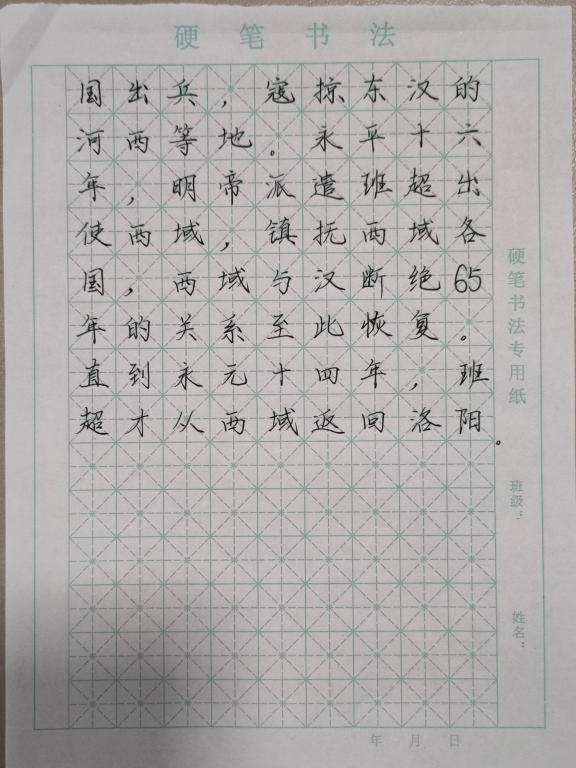 硬笔书法
国出兵，寇掠东汉的
河西等地。永平十六
年，明帝派遣班超出
使西域，镇抚西域各
国，西域与汉断绝65
年的关系至此恢复。
直到永元十四年，班
超才从西域返回洛阳。
硬笔书法专用纸
班级：
姓名：
年 月 日